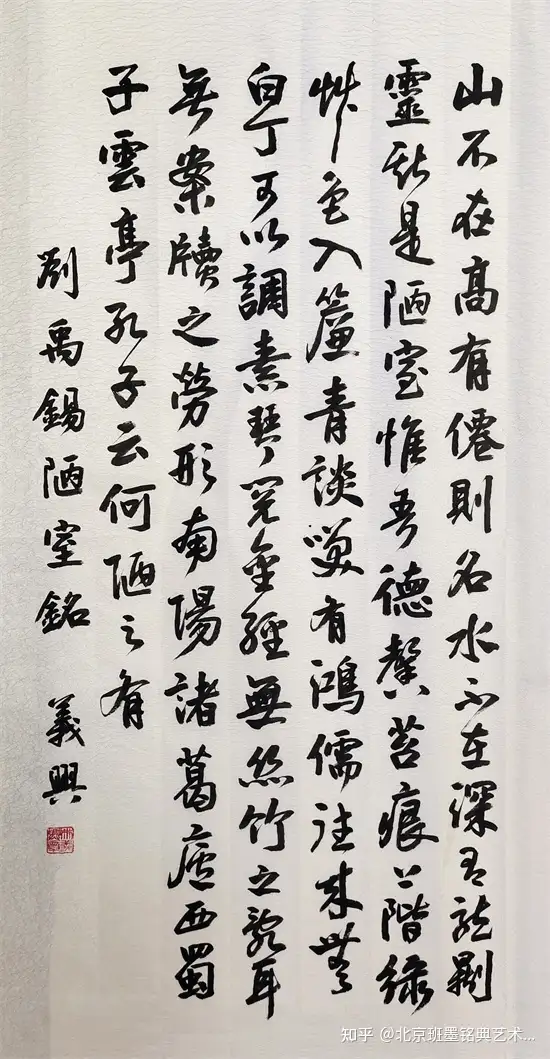 山不在高有僊則名水不在深有龍則
靈斯是陋室惟吾德馨苔痕上階綠
艸色入簾青談笑有鴻儒往來無
白丁可以調素琴閱金經無絲竹之亂耳
無案牘之勞形南陽諸葛廬西蜀
子雲亭孔子云何陋之有
劉禹錫陋室銘 義興
知乎 @北京班墨铭典艺术...